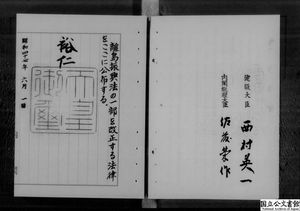 離島振興法の一部を改正する法律
をここに公布する。
裕仁
天皇
御璽
昭和四十七年六月一日
建設大臣 西村英一
内閣総理大臣 佐藤榮作
国立公文書館
National Archives of Japan